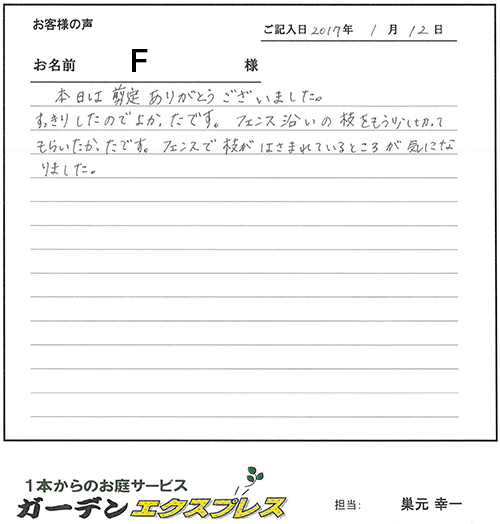 お客様の声
ご記入日 2017年 1月 12日
お名前 F 様
本日は剪定ありがとうございました。
すっきりしたのでよかったです。フェンス沿いの枝をもう少しカって
もらいたかったです。フェンスで枝がはさまれているところが気にな
りました。
1本からのお庭サービス
ガーデンエクスプレス
担当: 巣元 幸一